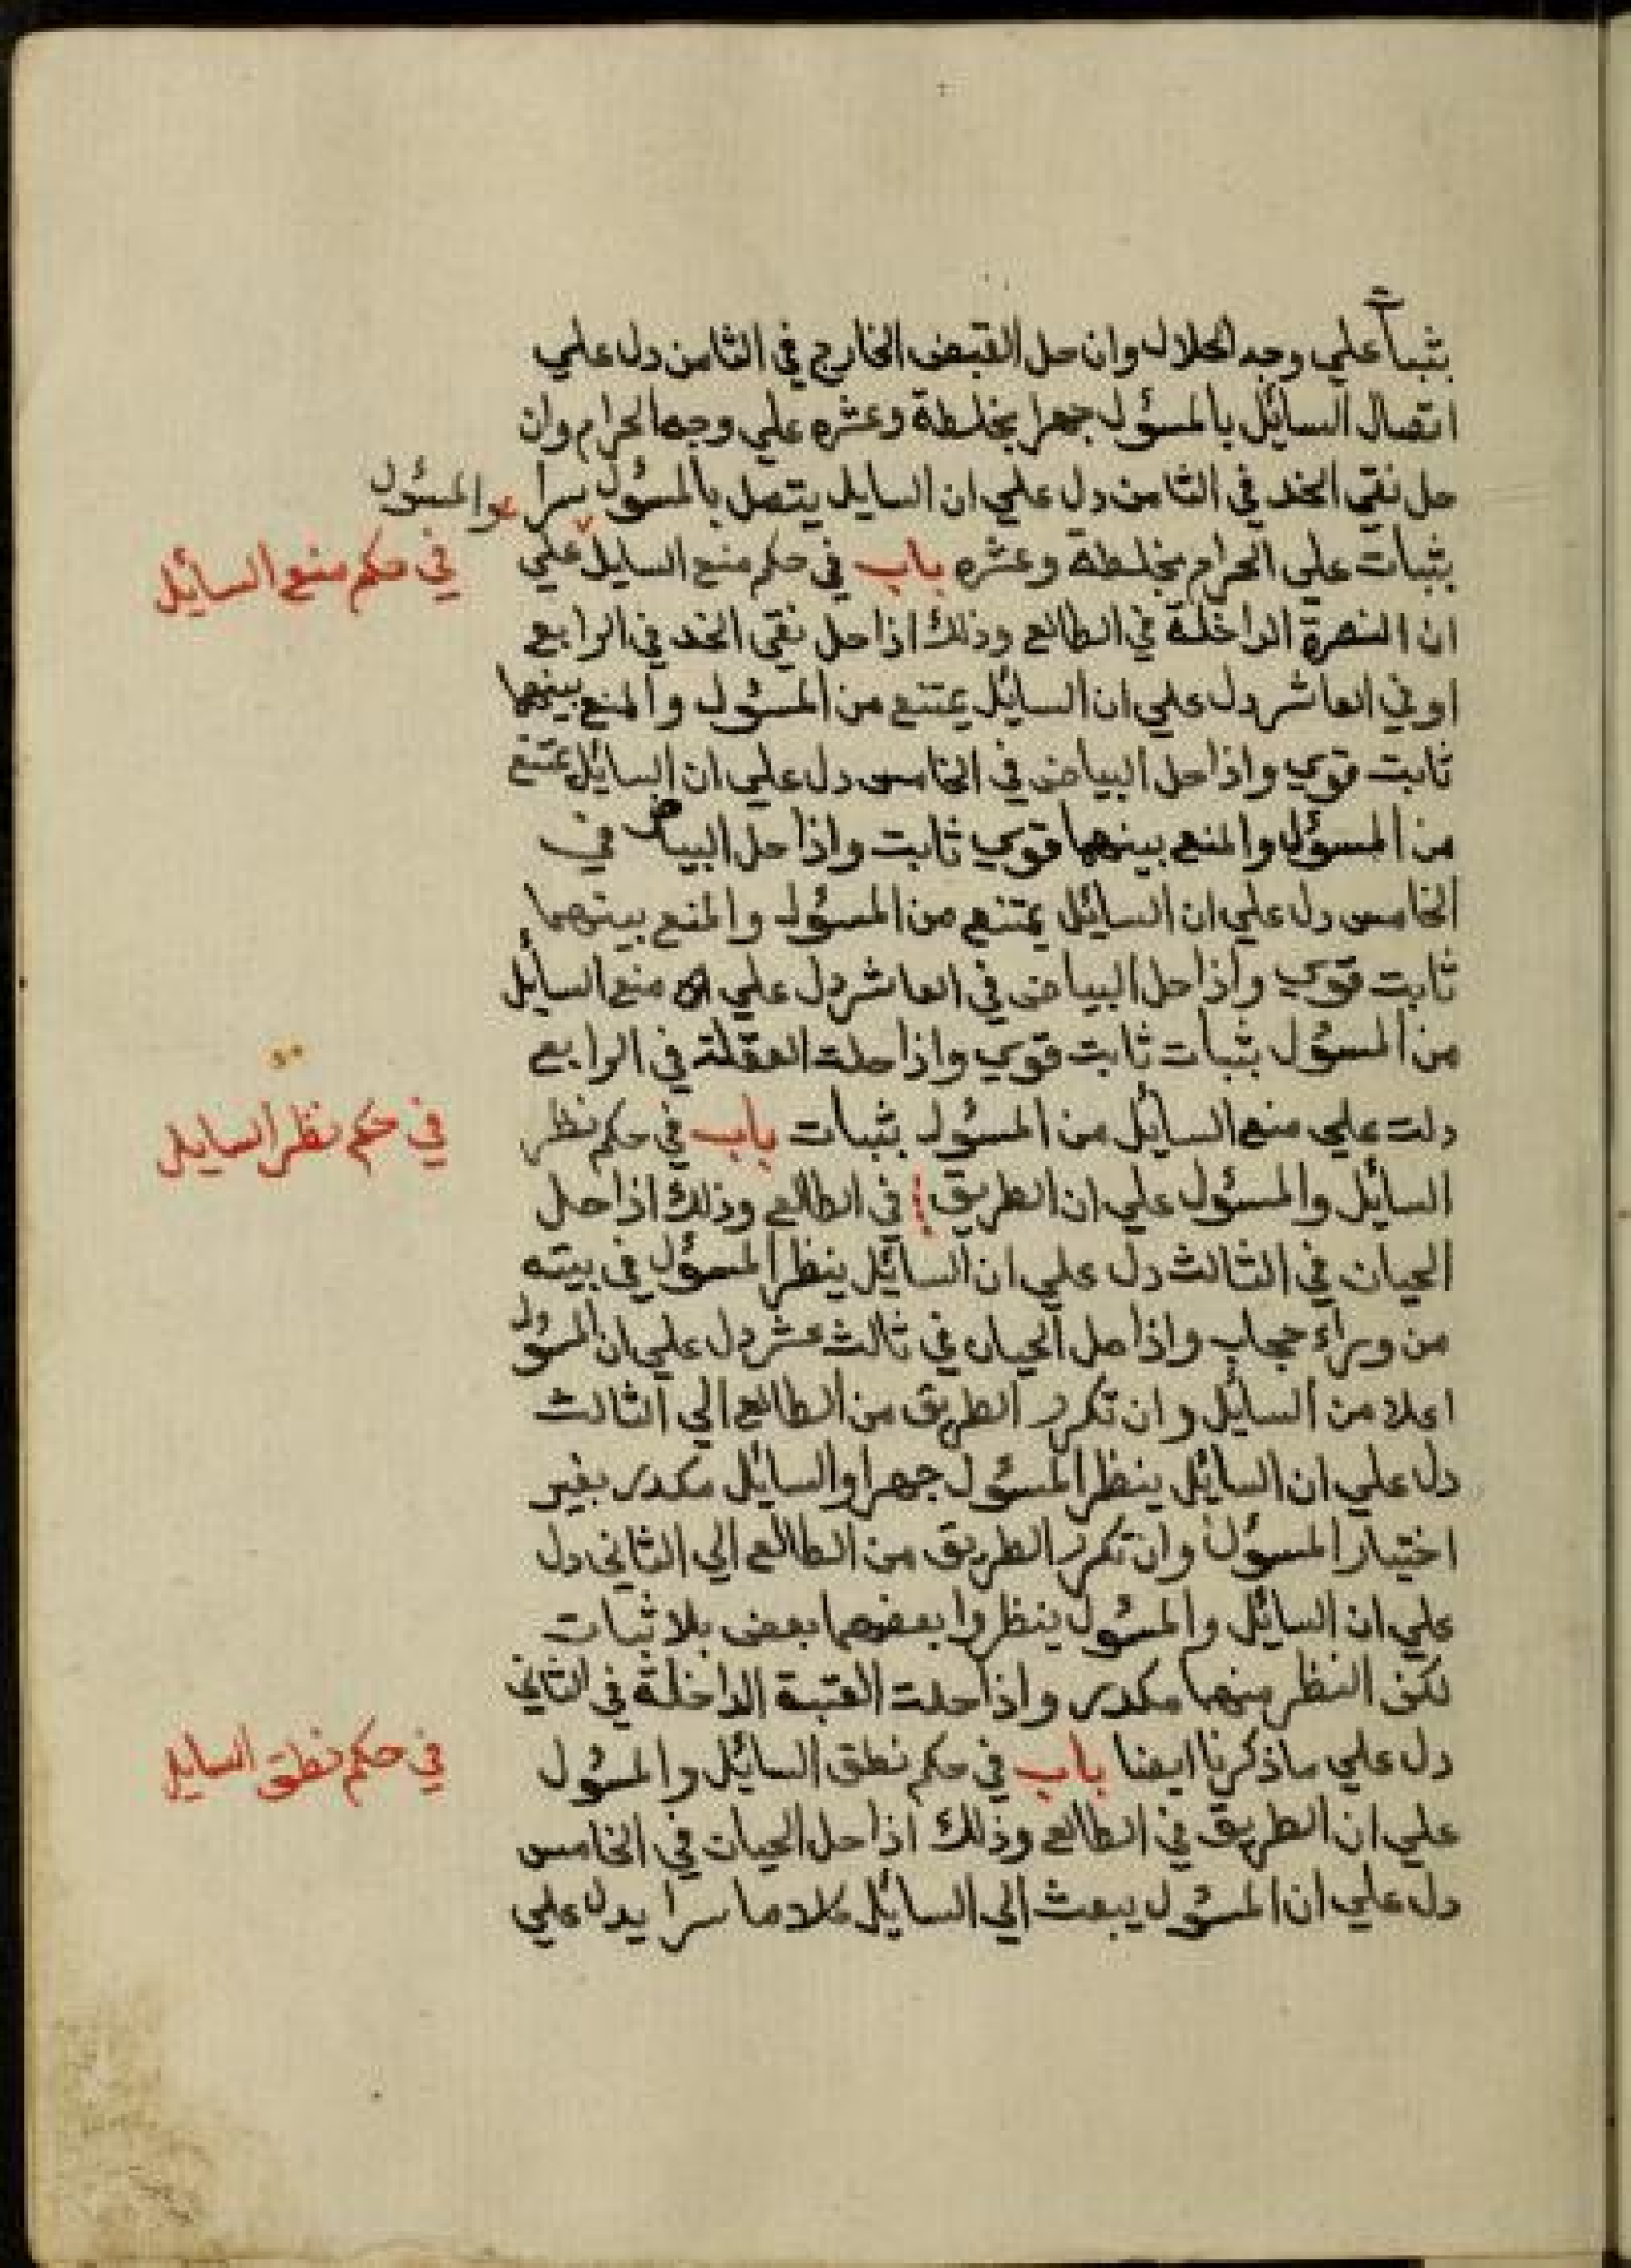 بثبات علي وجه الحلال وان حل القبض الخارج في الثامن دل علي
اتصال السائل بالمسؤل جهرا بخلطة وعشره علي وجه الحرام وان
حل نقي الخد في الثامن دل علي ان السايل يتصل بالمسؤل سرا والمسئول
بثبات علي الحرام بخلطة وعشره باب في حكم منع السايل علي
في حكم منع السائل
ان النصرة الداخلة في الطالع وذلك اذا حل نقي الخد في الرابع
او في العاشر دل علي ان السائل يمتنع من المسؤل والمنع بينهما
ثابت قوي واذا حل البياض في الخامس دل علي ان السائل يمتنع
من المسؤل والمنع بينهما قوي ثابت واذا حل البياض في
الخامس دل علي ان السائل يمتنع من المسؤل والمنع بينهما
ثابت قوي واذا حل البياض في العاشر دل علي منع السائل
من المسؤل بثبات ثابت قوي واذا حلت العقلة في الرابع
دلت علي منع السائل من المسؤل بثبات باب في حكم نظر
في حكم نظر السايل
السائل والمسئول علي ان الطريق في الطالع وذلك اذا حل
الحيان في الثالث دل علي ان السائل ينظر المسؤل في بيته
من وراء حجاب واذا حل الحيان في ثالث عشر دل علي ان المسؤل
اعلا من السائل وان تكرر الطريق من الطالع الي الثالث
دل علي ان السائل ينظر المسؤل جهرا والسائل مكدر بغير
اختيار المسؤل وان تكرر الطريق من الطالع الي الثاني دل
علي ان السائل والمسؤل ينظروا بعضهما بعض بلا ثبات
لكن النظر منهما مكدر واذا حلت العتبة الداخلة في الثاني
دل علي ماذكرنا ايضا باب في حكم نطق السائل والمسؤل
في حكم نطق السايل
علي ان الطريق في الطالع وذلك اذا حل الحيان في الخامس
دل علي ان المسؤل يبعث الي السائل كلاما سرا يدل علي